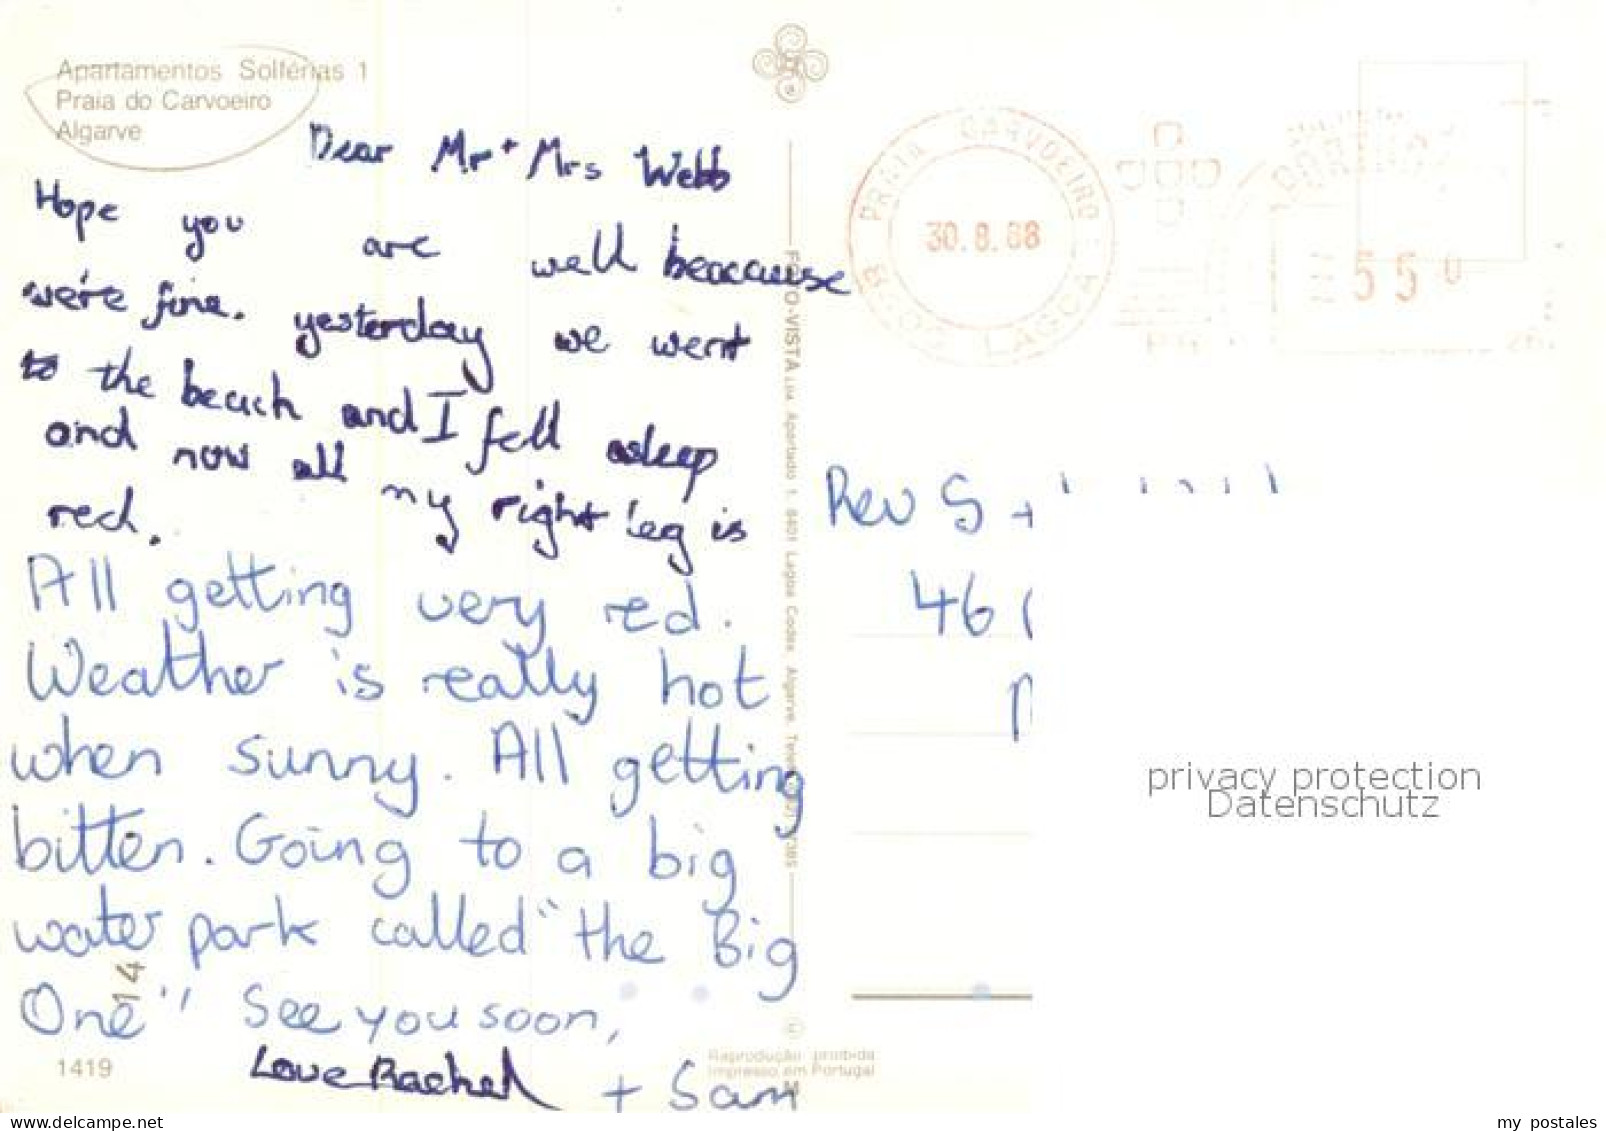 Apartamentos Solférias 1
Praia do Carvoeiro
Algarve
Dear Mr + Mrs Webb
Hope you are well beaccause
we're fine. yesterday we went
to the beach and I fell asleep
and now all my right leg is
red.
All getting very red.
Weather is really hot
when sunny. All getting
bitten. Going to a big
water park called "the Big
One" See you soon,
Love Rachel + Sam
14
1419
Reprodução proibida
Impresso em Portugal
PRAIA CARVOEIRO
30.8.88
LAGOA
55
Rev S +
46
privacy protection
Datenschutz
delcampe.net
my postales